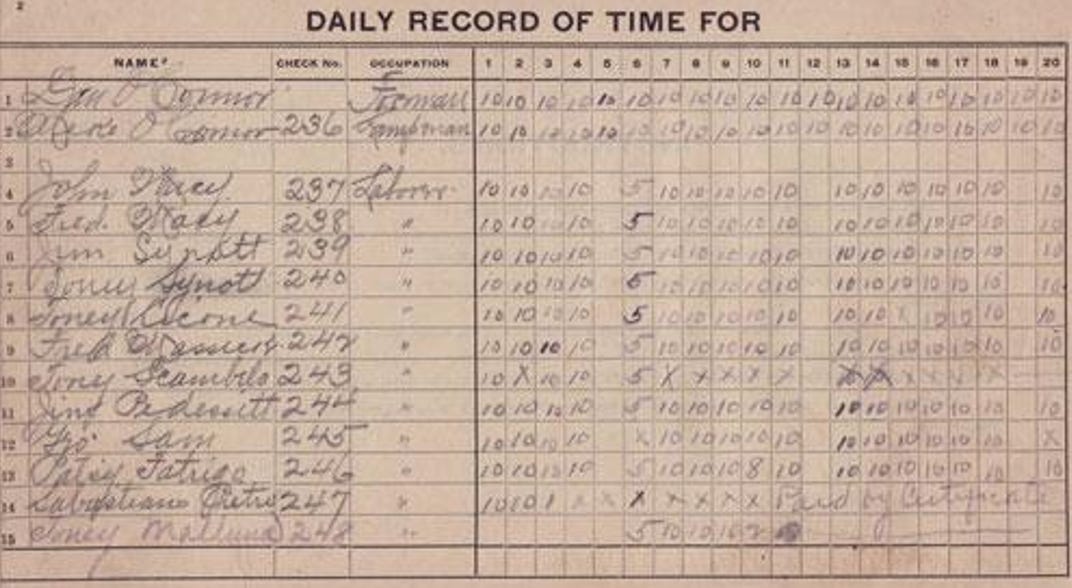 2
DAILY RECORD OF TIME FOR
NAME CHECK No. OCCUPATION 1 2 3 4 5 6 7 8 9 10 11 12 13 14 15 16 17 18 19 20
1 O'Connor Foreman 10 10 10 10 10 10 10 10 10 10 10 10 10 10 10 10 10 10 10 10
2 O'Connor 236 10 10 10 10 10 10 10 10 10 10 10 10 10 10 10 10 10 10 10 10
3
4 John 237 Laborer 10 10 10 10 5 10 10 10 10 10 10 10 10 10 10 10 10
5 Fred 238 " 10 10 10 10 5 10 10 10 10 10 10 10 10 10 10 10 10
6 Jim Synott 239 " 10 10 10 10 5 10 10 10 10 10 10 10 10 10 10 10 10
7 Toney Synott 240 " 10 10 10 10 5 10 10 10 10 10 10 10 10 10 10 10 10
8 Toney Cicone 241 " 10 10 10 10 5 10 10 10 10 10 10 10 x 10 10 10 10
9 Fred 242 " 10 10 10 10 5 10 10 10 10 10 10 10 10 10 10 10 10
10 Tony Scambilo 243 " 10 X 10 10 5 X x x x x X X x x x x
11 244 " 10 10 10 10 5 10 10 10 10 10 10 10 10 10 10 10 10
12 Geo. Sam 245 " 10 10 10 10 x 10 10 10 10 10 10 10 10 10 10 10 X
13 Patsy 246 " 10 10 10 10 5 10 10 10 8 10 10 10 10 10 10 10 10
14 247 " 10 10 1 x x x x x x x Paid by Certificate
15 Toney 248 " 5 10 10 10